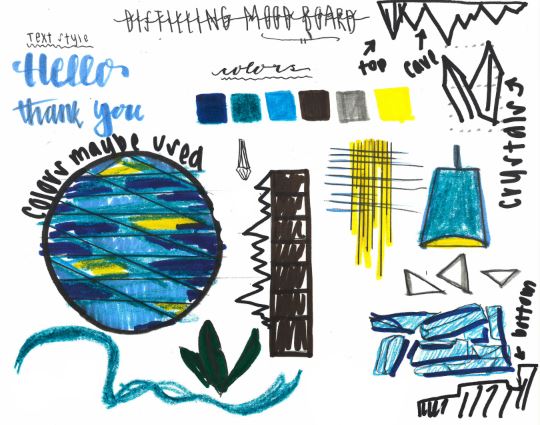 DISTILLING MOOD BOARD
Text style
Hello
thank you
colors
top
cave
crystals
colors maybe used
bottom